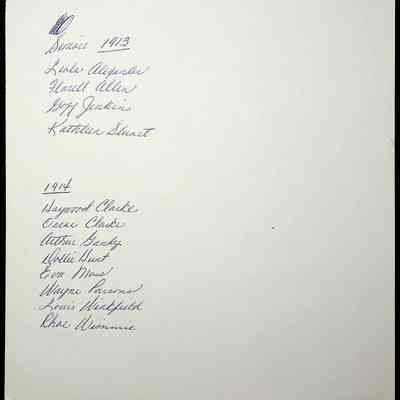 Seniors 1913
Leola Alexander
Florell Allen
Goff Jenkins
Kathleen Stuart
1914
Haywood Clarke
Oscar Clarke
Arthur Gandy
Dollie Hunt
Eva Moss
Wayne Parsons
Louis Winkfield
Rhoe Wimmie